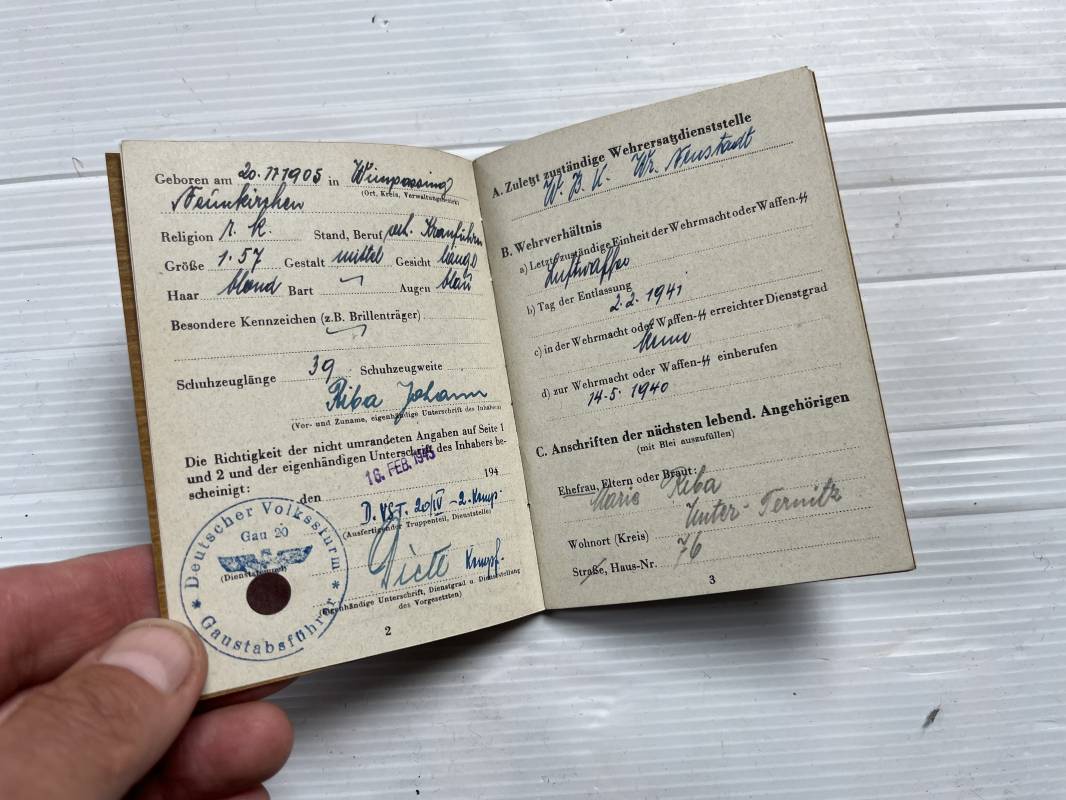 Geboren am 20.11 1905 in Wimpassing
(Ort, Kreis, Verwaltungsbezirk)
Neunkirchen
Religion r. k. Stand, Beruf
Größe 1.57 Gestalt mittel Gesicht
Haar blond Bart Augen blau
Besondere Kennzeichen (z.B. Brillenträger)
Schuhzeuglänge 39 Schuhzeugweite
Riba Johann
(Vor- und Zuname, eigenhändige Unterschrift des Inhabers)
Die Richtigkeit der nicht umrandeten Angaben auf Seite 1
und 2 und der eigenhändigen Unterschrift des Inhabers be-
scheinigt:
16. FEB. 1945
den 194
D. VST. 20/IV - 2. Komp.
(Ausfertigender Truppenteil, Dienststelle)
Deutscher Volkssturm
Gau 20
Gaustabsführer
(eigenhändige Unterschrift, Dienstgrad u. Dienststellung
des Vorgesetzten)
2
A. Zuletzt zuständige Wehrersatzdienststelle
W. B. K. Wr. Neustadt
B. Wehrverhältnis
a) Letzte zuständige Einheit der Wehrmacht oder Waffen-SS
Luftwaffe
b) Tag der Entlassung
2.2. 1941
c) in der Wehrmacht oder Waffen-SS erreichter Dienstgrad
d) zur Wehrmacht oder Waffen-SS einberufen
14.5. 1940
C. Anschriften der nächsten lebend. Angehörigen
(mit Blei auszufüllen)
Ehefrau, Eltern oder Braut:
Marie Riba
Unter-Ternitz
Wohnort (Kreis)
Straße, Haus-Nr. 76
3